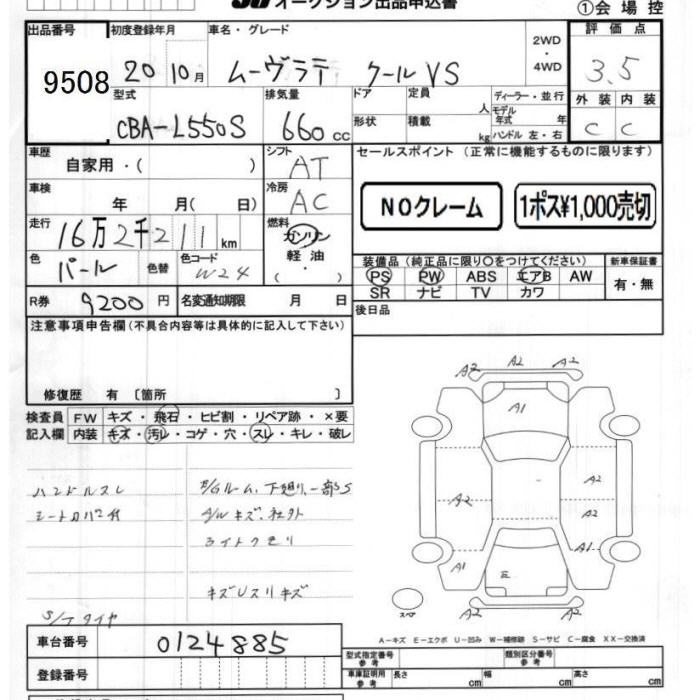 オークション出品申込書
①会場控
出品番号 初度登録年月 車名・グレード 2WD・4WD 評価点
9508 20 10月 ムーヴラテ クールVS 3.5
型式 排気量 ドア 定員 人 ディーラー・並行 外装 内装
CBA-L550S 660cc 形状 積載 kg モデル年式 年 ハンドル 左・右 C C
車歴 自家用・( ) シフト AT セールスポイント (正常に機能するものに限ります)
車検 年 月( 日) 冷房 AC NOクレーム 1ポス¥1,000売切
走行 16万2千211km 燃料 ガソリン 軽油 ・ ( )
装備品(純正品に限り○をつけてください) 新車保証書
色 パール 色替 色コード W24 PS PW ABS エアB AW 有・無
SR ナビ TV カワ
R券 9200円 名変通知期限 月 日 後日品
注意事項申告欄(不具合内容等は具体的に記入して下さい)
修復歴 有 〔箇所 〕
検査員 FW キズ・飛石・ヒビ割・リペア跡・×要
記入欄 内装 キズ・汚レ・コゲ・穴・スレ・キレ・破レ
A2 A2 A2
A1
ハンドルスレ E/Gルーム、下廻り、一部S
A2 A2
シートカバー付 A/Wキズ、社外
A2
ライトクモリ
A1 A1
キズUスリキズ
スペア
A2 A2
S/Tタイヤ
A-キズ E-エクボ U-凹み W-補修跡 S-サビ C-腐食 XX-交換済
車台番号 0124885
型式指定番号 参考 類別区分番号 参考
登録番号 車庫証明用 参考 長さ cm 幅 cm 高さ cm